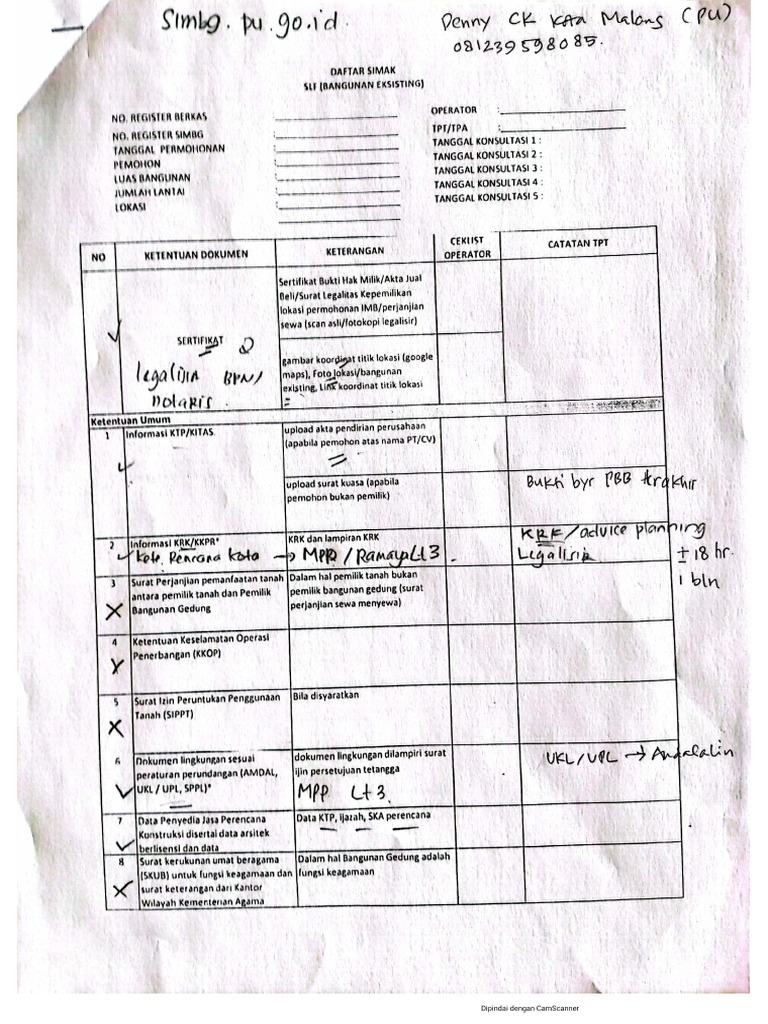 Simbg.pu.go.id
Denny CK KAA Malang (PU)
081239598085.
DAFTAR SIMAK
SLF (BANGUNAN EKSISTING)
NO. REGISTER BERKAS :
NO. REGISTER SIMBG :
TANGGAL PERMOHONAN :
PEMOHON :
LUAS BANGUNAN :
JUMLAH LANTAI :
LOKASI :
OPERATOR :
TPT/TPA :
TANGGAL KONSULTASI 1 :
TANGGAL KONSULTASI 2 :
TANGGAL KONSULTASI 3 :
TANGGAL KONSULTASI 4 :
TANGGAL KONSULTASI 5 :
NO
KETENTUAN DOKUMEN
KETERANGAN
CEKLIST
OPERATOR
CATATAN TPT
SERTIFIKAT
legalisir BPN/
notaris
Sertifikat Bukti Hak Milik/Akta Jual
Beli/Surat Legalitas Kepemilikan
lokasi permohonan IMB/perjanjian
sewa (scan asli/fotokopi legalisir)
gambar koordinat titik lokasi (google
maps), Foto lokasi/bangunan
existing, Link koordinat titik lokasi
Ketentuan Umum
1
Informasi KTP/KITAS
upload akta pendirian perusahaan
(apabila pemohon atas nama PT/CV)
upload surat kuasa (apabila
pemohon bukan pemilik)
Bukti byr PBB trakhir
2
Informasi KRK/KKPR*
Kete. Rencana Kota →
KRK dan lampiran KRK
MPP / Ramaya Lt 3
KRK/advice planning
Legalisir
± 18 hr.
1 bln
3
Surat Perjanjian pemanfaatan tanah
antara pemilik tanah dan Pemilik
Bangunan Gedung
Dalam hal pemilik tanah bukan
pemilik bangunan gedung (surat
perjanjian sewa menyewa)
4
Ketentuan Keselamatan Operasi
Penerbangan (KKOP)
5
Surat Izin Peruntukan Penggunaan
Tanah (SIPPT)
Bila disyaratkan
6
Dokumen lingkungan sesuai
peraturan perundangan (AMDAL,
UKL / UPL, SPPL)*
dokumen lingkungan dilampiri surat
ijin persetujuan tetangga
MPP Lt 3
UKL/UPL → Andalalin
7
Data Penyedia Jasa Perencana
Konstruksi disertai data arsitek
berlisensi dan data
Data KTP, ijazah, SKA perencana
8
Surat kerukunan umat beragama
(SKUB) untuk fungsi keagamaan dan
surat keterangan dari Kantor
Wilayah Kementerian Agama
Dalam hal Bangunan Gedung adalah
fungsi keagamaan
Dipindai dengan CamScanner